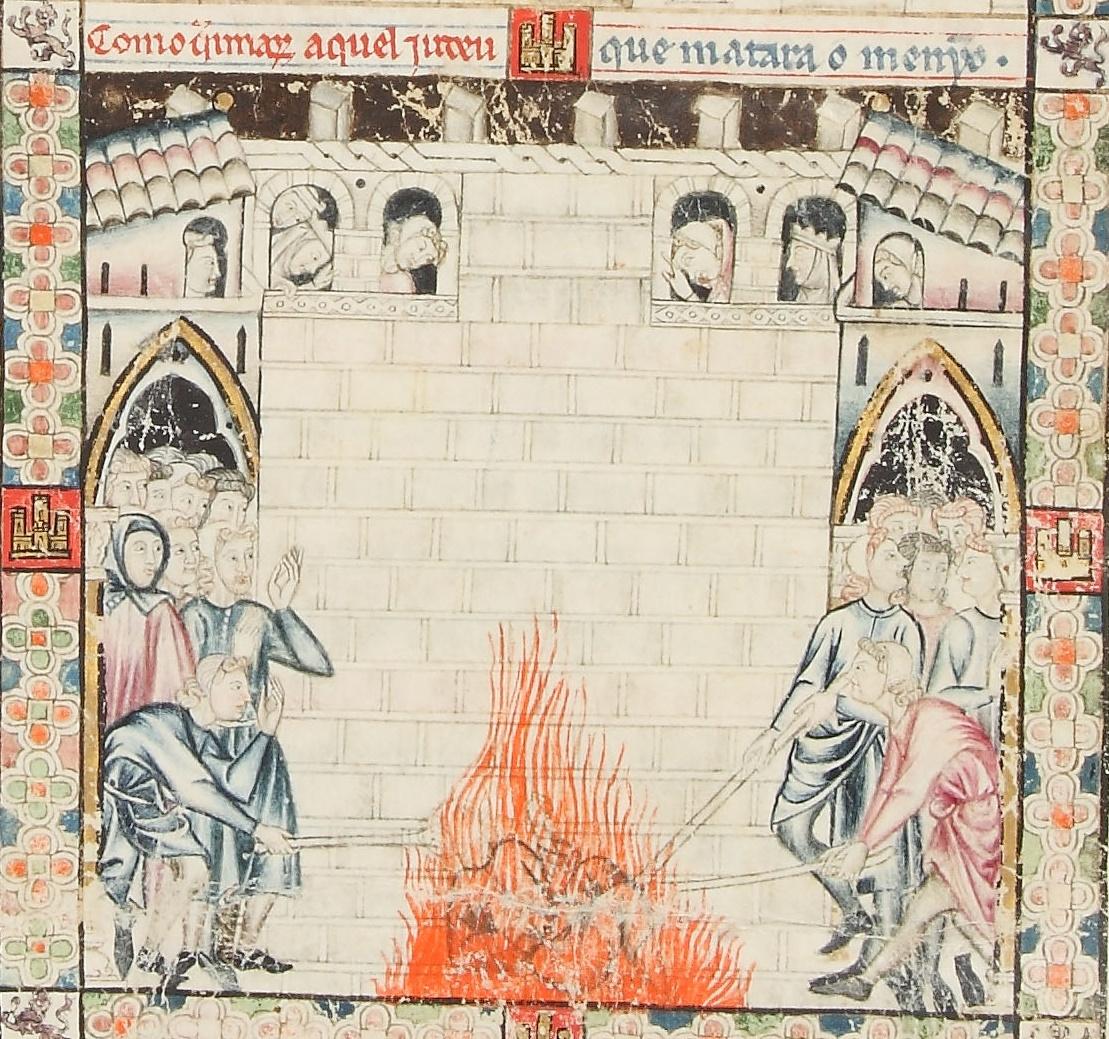 Como q̃imaꝝ aquel judeu que matara o menỹo ·